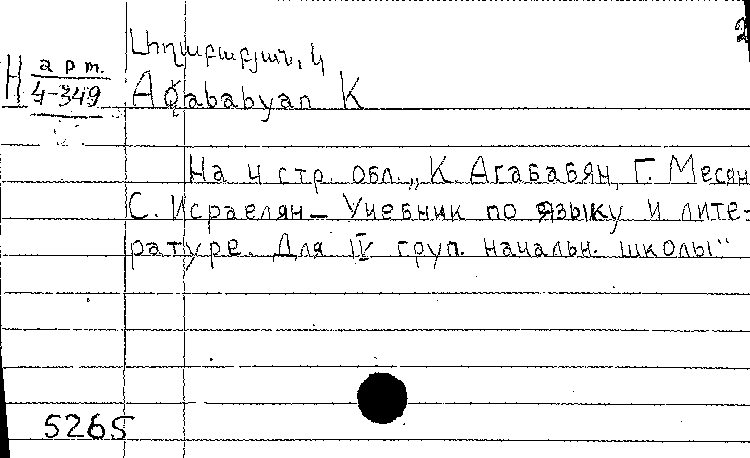 2
Աղաբաբյան, Կ
Н арт.
4-349
Aqababyan K
На 4 стр. обл. „К. Агабабян, Г. Месян
С. Исраелян — Учебник по языку и лите-
ратуре. Для IV груп. начальн. школы“
5265